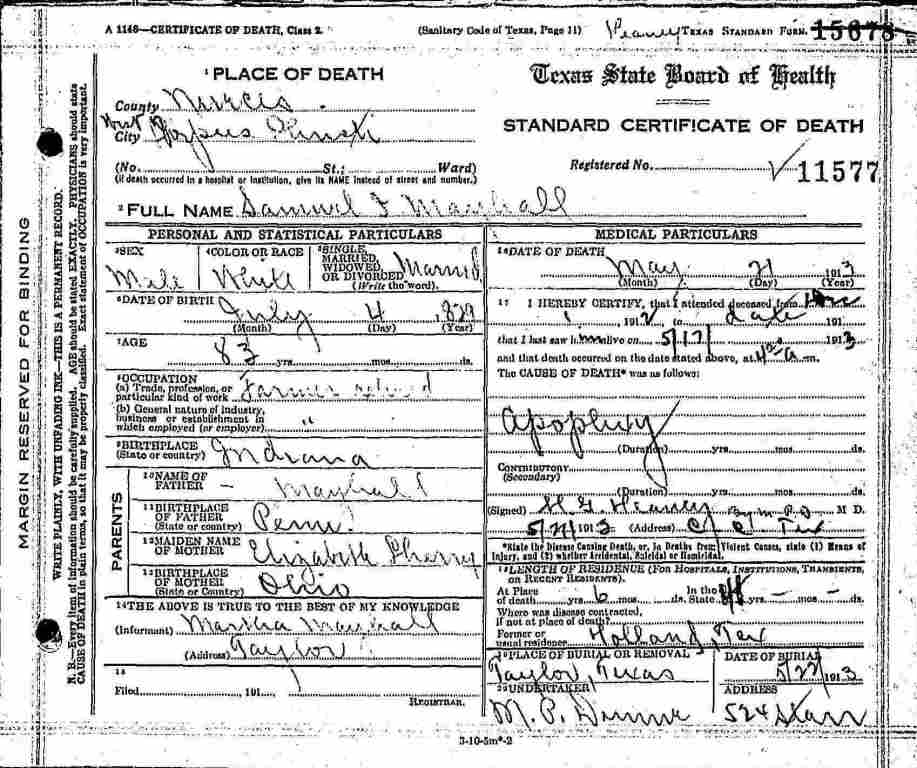 A 1148—CERTIFICATE OF DEATH, Class 2. (Sanitary Code of Texas, Page 11) TEXAS STANDARD FORM. 15678
1 PLACE OF DEATH
County Nueces
City Corpus Christi
(No. St.; Ward)
(If death occurred in a hospital or institution, give its NAME instead of street and number.)
Texas State Board of Health
STANDARD CERTIFICATE OF DEATH
Registered No. 11577
2 FULL NAME Samuel F Mayhall
PERSONAL AND STATISTICAL PARTICULARS
3 SEX
Male
4 COLOR OR RACE
White
5 SINGLE, MARRIED, WIDOWED, OR DIVORCED (Write the word). Married
6 DATE OF BIRTH
July 4 1829
(Month) (Day) (Year)
7 AGE
83 yrs. mos. ds.
8 OCCUPATION
(a) Trade, profession, or
particular kind of work Farmer retired
(b) General nature of industry,
business or establishment in
which employed (or employer) "
9 BIRTHPLACE
(State or country) Indiana
PARENTS
10 NAME OF
FATHER – Mayhall
11 BIRTHPLACE
OF FATHER
(State or country) Penn.
12 MAIDEN NAME
OF MOTHER Elizabeth
13 BIRTHPLACE
OF MOTHER
(State or Country) Ohio
14 THE ABOVE IS TRUE TO THE BEST OF MY KNOWLEDGE
(Informant) Martha Mayhall
(Address) Taylor
15
Filed 191
REGISTRAR.
MEDICAL PARTICULARS
16 DATE OF DEATH
May 21 1913
(Month) (Day) (Year)
17 I HEREBY CERTIFY, that I attended deceased from
1912 to date 191
that I last saw him alive on 5/17/ 1913
and that death occurred on the date stated above, at 4 a m.
The CAUSE OF DEATH* was as follows:
Apoplexy
(Duration) yrs. mos. ds.
CONTRIBUTORY
(Secondary)
(Duration) yrs. mos. ds.
(Signed) H. G. Heaney M D.
5/21 1913 (Address) C C Tex
*State the Disease Causing Death, or, in Deaths from Violent Causes, state (1) Means of
Injury, and (2) whether Accidental, Suicidal or Homicidal.
18 LENGTH OF RESIDENCE (FOR HOSPITALS, INSTITUTIONS, TRANSIENTS,
OR RECENT RESIDENTS).
At Place of death yrs. 6 mos. ds. In the State – mos. – ds.
Where was disease contracted,
if not at place of death?
Former or
usual residence Holland Tex
19 PLACE OF BURIAL OR REMOVAL
Taylor, Texas
DATE OF BURIAL
5/22/1913
20 UNDERTAKER
M. P. Dunne
ADDRESS
524 Starr
3-10-5m*-2
MARGIN RESERVED FOR BINDING
WRITE PLAINLY, WITH UNFADING INK—THIS IS A PERMANENT RECORD.
N. B.—Every item of information should be carefully supplied. AGE should be stated EXACTLY. PHYSICIANS should state
CAUSE OF DEATH in plain terms, so that it may be properly classified. Exact statement of OCCUPATION is very important.